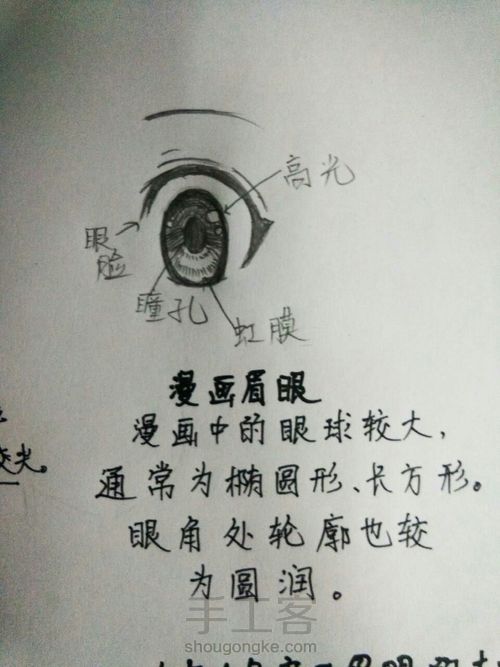 高光
眼
脸
瞳孔
虹膜
漫画眉眼
漫画中的眼球较大，
通常为椭圆形、长方形。
眼角处轮廓也较
为圆润。
手工客
shougongke.com